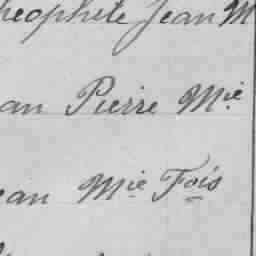 heophile Jean M
an Pierre Mie
ean Mie Fois